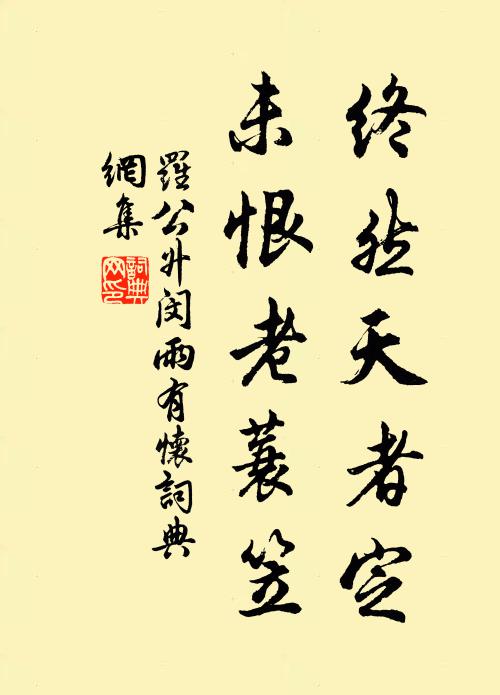 終然天者定
未恨老蓑笠
羅公升閔雨有懷詞典
網集
詞典网印